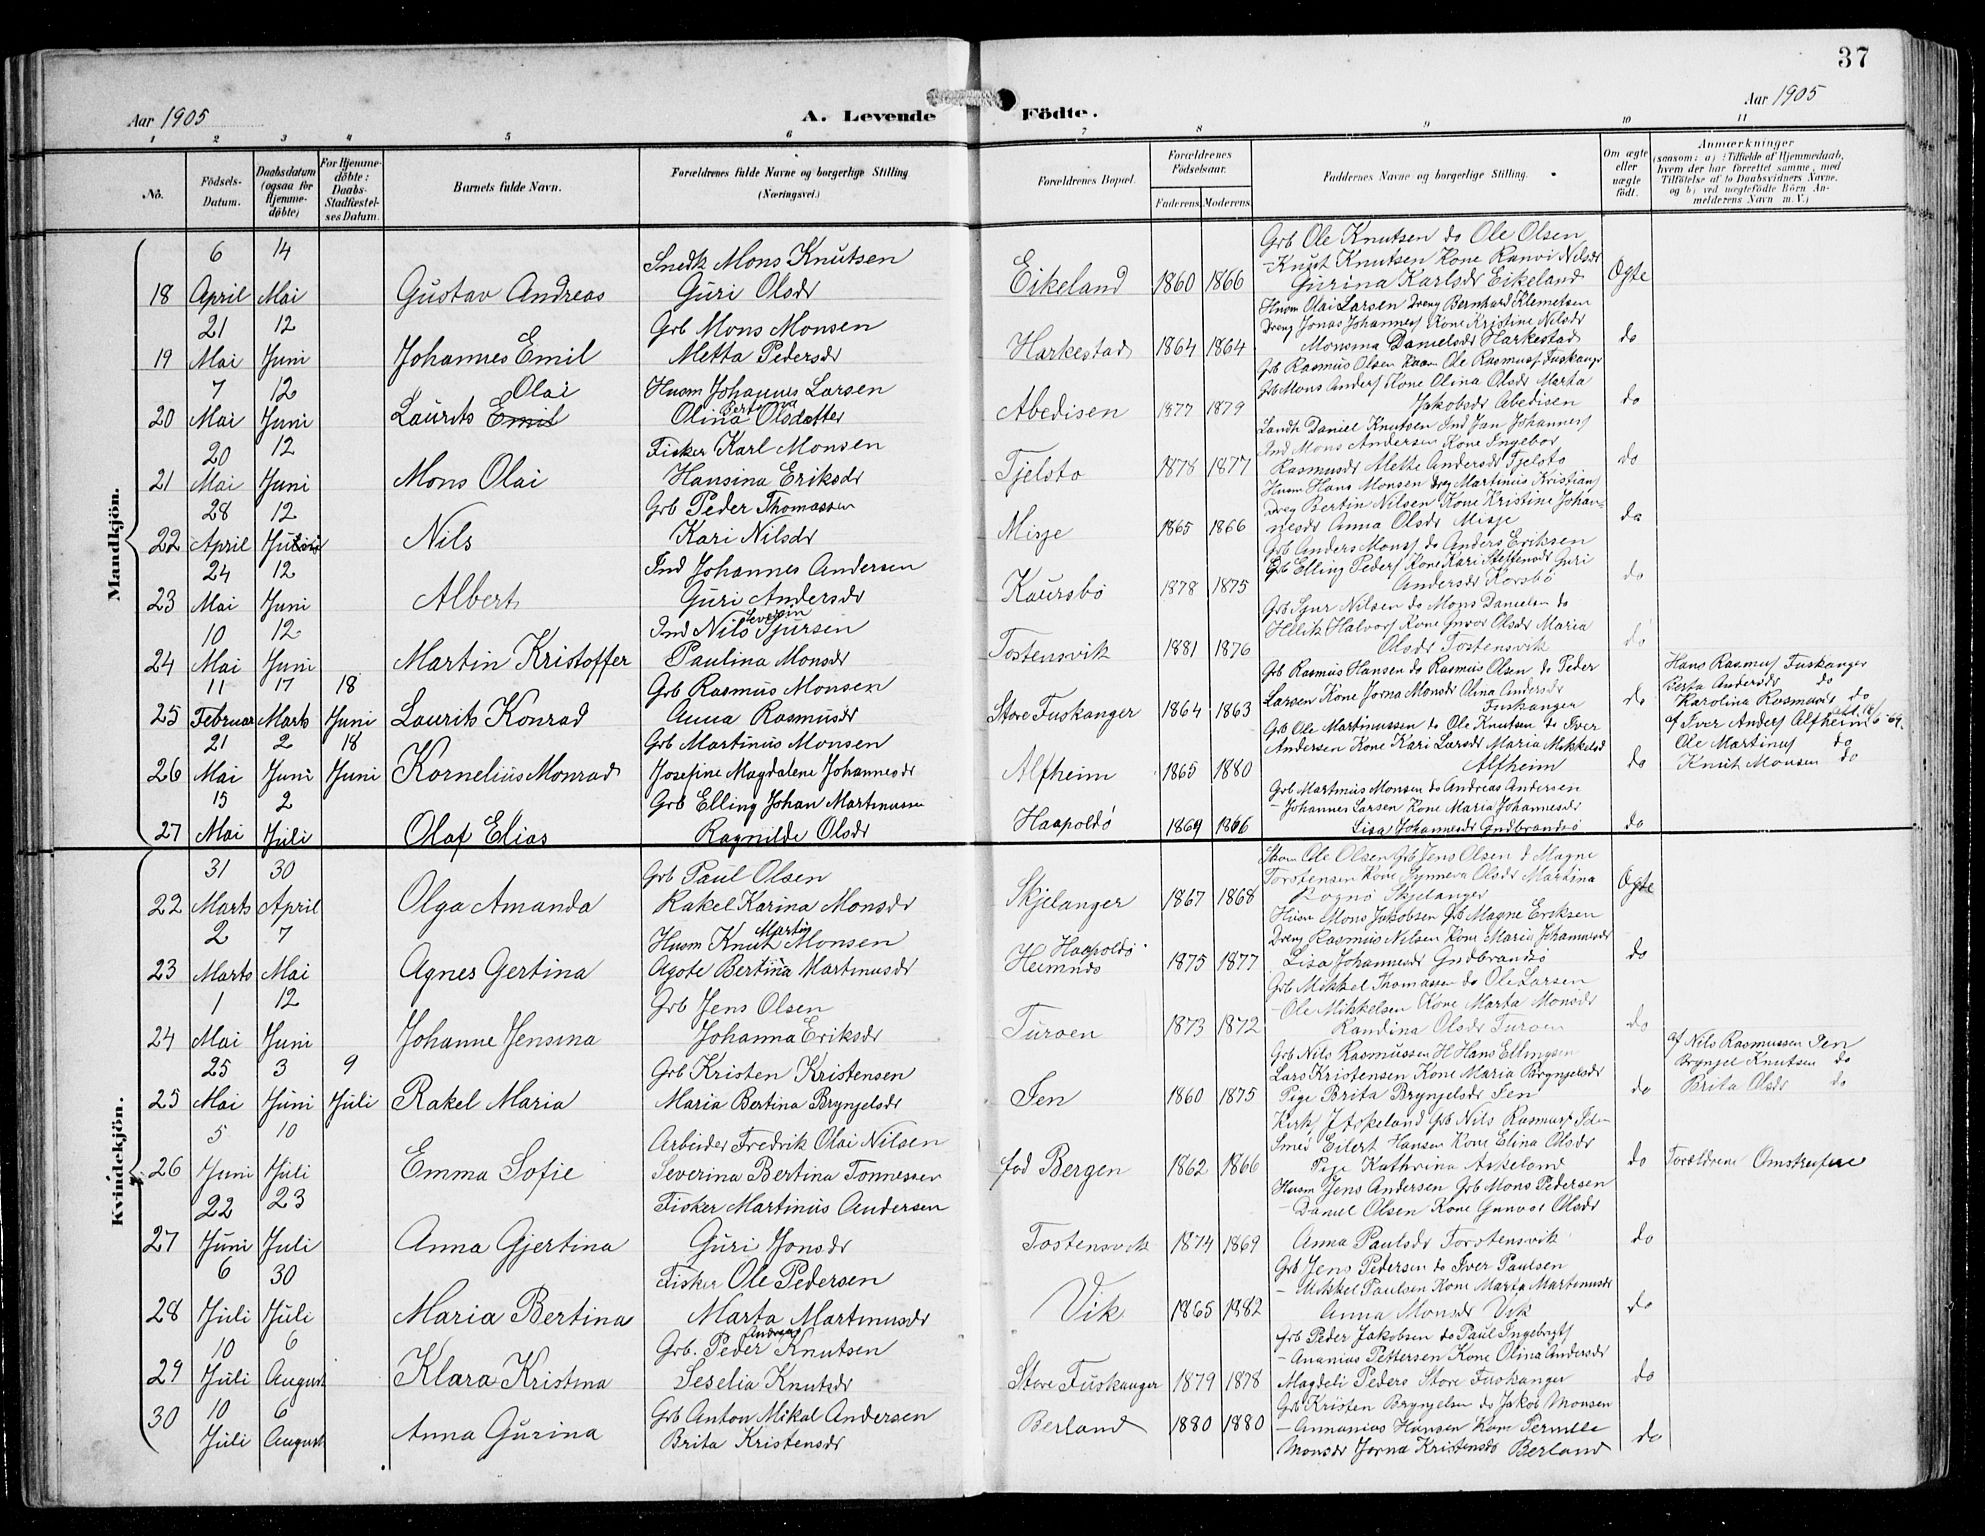 37
Aar 1905 A. Levende Födte. Aar 1905
1 2 3 4 5 6 7 8 9 10 11
No.
Födsels-Datum.
Daabsdatum (ogsaa for Hjemme-döbte)
For Hjemme-döbte: Daabs-Stadfæstel-ses Datum.
Barnets fulde Navn.
Forældrenes fulde Navne og borgerlige Stilling (Næringsvei.)
Forældrenes Bopæl.
Forældrenes Födselsaar.
Faderens Moderens
Faddernes Navne og borgerlige Stilling.
Om ægte eller uægte födt.
Anmærkninger
(saasom: a) i Tilfælde af Hjemmedaab, hvem der har forrettet samme, med Tilföielse af to Daabsvidners Navne, og b) ved uægtefödte Börn An-melderens Navn m. V.)
Mandkjön.
18 6 April 14 Mai Gustav Andreas
Snedk Mons Knutsen
Guri Olsdr
Eikeland 1860 1866
Grb Ole Knutsen do Ole Olsen
- Knut Knutsen Kone Ranvi Nilsdr
Gurina Karlsdr Eikeland
Ægte
19 21 Mai 12 Juni Johannes Emil
Grb Mons Monsen
Metta Pedersdr
Harkestad 1864 1864
Husm Olai Larsen Dreng Bernhard Klemetsen
Dreng Jonas Johannes Kone Kristine Nilsdr
Monsina Danielsdr Harkestad
do
20 7 Mai 12 Juni Laurits Emil Olai
Husm Johannes Larsen
Olina Bertina Olsdatter
Abedisen 1877 1879
Grb Rasmus Olsen Husm Ole Rasmuss Fuskanger
Grb Mons Anders Kone Olina Olsdr Marta
Jakobsdr Abedisen
do
21 20 Mai 12 Juni Mons Olai
Fisker Karl Monsen
Hansina Eriksdr
Tjelsto 1878 1877
Landh Daniel Knutsen Ind Jan Johannes
Ind Mons Andersen Kone Ingebor
Rasmusdr Mette Andersdr Tjelsto
do
22 28 April 12 Juni Nils
Grb Peder Thomassen
Kari Nilsdr
Misje 1865 1866
Husm Hans Monsen Drg Martinus Kristians
Dreng Bertin Nilsen Kone Kristine Johan-
nesdr Anna Olsdr Misje
do
23 24 Mai 12 Juni Albert
Ind Johannes Andersen
Guri Andersdr
Kaursbö 1878 1875
Grb Anders Mons do Anders Eriksen
Grb Elling Peders Kone Kari Steffensdr Guri
Andersdr Korsbö
do
24 10 Mai 12 Juni Martin Kristoffer
Ind Nils Severin Sjursen
Paulina Monsdr
Tostensvik 1881 1876
Grb Sjur Nilsen do Mons Danielsen do
Helik Halvors Kone Gnvor Olsdr Maria
Olsdr Tostensvik
do
25 11 Februar 17 Marts 18 Juni Laurits Konrad
Grb Rasmus Monsen
Anna Rasmusdr
Store Fuskanger 1864 1863
Grb Rasmus Hansen do Rasmus Olsen do Peder
Larsen Kone Jorna Monsdr Olina Andersdr
Fuskanger
do
Hans Rasmus Fuskanger
Berta Andersdr do
Karolina Rasmusdr do
26 21 Mai 2 Juni 18 Juni Kornelius Monrad
Grb Martinus Monsen
Josefine Magdalene Johannesdr
Alfheim 1865 1880
Grb Ole Martinussen do Ole Knutsen do Iver
Andersen Kone Kari Larsdr Maria Mikkelsd
Alfheim
do
af Iver Anders Alfheim
Ole Martinus do
Knut Monsen do
27 15 Mai 2 Juli Olaf Elias
Grb Elling Johan Martinussen
Ragnilde Olsdr
Haapoldö 1869 1866
Grb Martinus Monsen do Andreas Andersen
- Johannes Larsen Kone Maria Johannesdr
Lisa Johannesdr Gudbrandsö
do
Kvindekjön.
22 31 Marts 30 April Olga Amanda
Grb Paul Olsen
Rakel Karina Monsdr
Skjelanger 1867 1868
Husm Ole Olsen Grb Jens Olsen d Magne
Torstensen Kone Synneva Olsdr Martina
Rognö Skjelanger
Ægte
23 2 Marts 7 Mai Agnes Gertina
Husm Knut Martin Monsen
Agote Bertina Martinusdr
Haapoldö
Heimndö 1875 1877
Husm Mons Jakobsen Grb Magne Eriksen
Dreng Rasmus Nilsen Kone Maria Johannesdr
Lisa Johannesdr Gudbrandsö
do
24 1 Mai 12 Juni Johanne Jensina
Grb Jens Olsen
Johanna Eriksdr
Turoen 1873 1872
Grb Mikkel Thomassen do Ole Larsen
- Ole Mikkelsen Kone Marta Monsdr
Randina Olsdr Turoen
do
25 25 Mai 3 Juni 9 Juli Rakel Maria
Grb Kristen Kristensen
Maria Bertina Brynjelsdr
Sen 1860 1875
Grb Nils Rasmussen H Hans Ellingsen
Lars Kristensen Kone Maria Brynjelsdr
Pige Brita Brynjelsdr Sen
do
af Nils Rasmussen Sen
Brynjel Knutsen do
Brita Olsdr do
26 5 Juni 10 Juli Emma Sofie
Arbeider Fredrik Olai Nilsen
Severina Bertina Tonnessen
fød Bergen 1862 1866
Kirks J Askeland Grb Nils Rasmus
Smed Eilert Hansen Kone Elina Olsdr
Pige Kathrina Askeland
do
Forældrene Omstreifere
27 22 Juni 23 Juli Anna Gjertina
Fisker Martinus Andersen
Guri Jonsdr
Tostensvik 1874 1869
Husm Jens Andersen Grb Mons Pedersen
- Daniel Olsen Kone Gunvor Olsdr
Anna Paulsdr Torstensvik
do
28 6 Juli 30 Juli Maria Bertina
Fisker Ole Pedersen
Marta Martinusdr
Vik 1865 1882
Grb Jens Pedersen do Iver Paulsen
- Mikkel Paulsen Kone Marta Martinusdr
Anna Monsdr Vik
do
29 10 Juli 6 August Klara Kristina
Grb. Peder Andreas Knutsen
Seselia Knutsdr
Store Fuskanger 1879 1878
Grb Peder Jakobsen do Paul Ingebrigts
- Ananias Pettersen Kone Olina Andersdr
Magdeli Peders Store Fuskanger
do
30 10 Juli 6 August Anna Gurina
Grb Anton Mikal Andersen
Brita Kristensdr
Berland 1880 1880
Grb Kristen Brynjelsen do Jakob Monsen
- Annanias Hansen Kone Pernille
Monsdr Jorna Kristensdr Berland
do